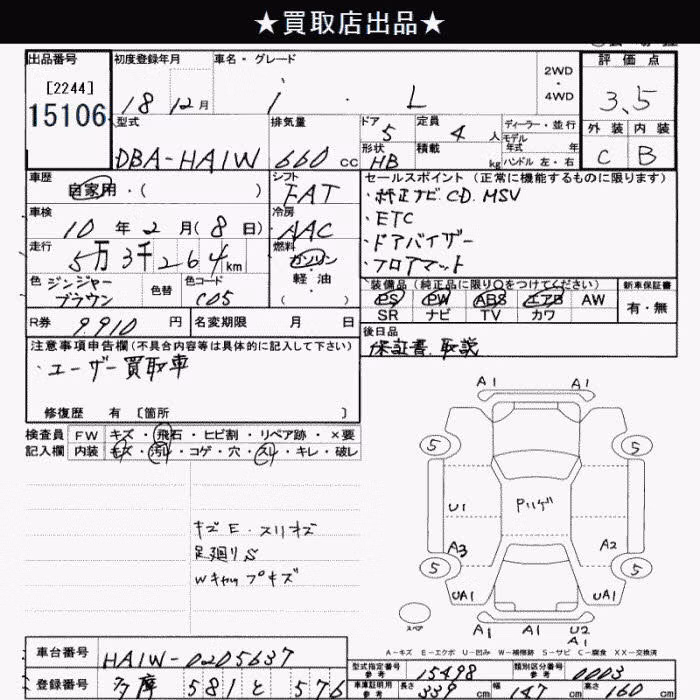 ★買取店出品★
出品番号 初度登録年月 車名・グレード 2WD 4WD 評価点
[2244]
15106
18 12月 i L 3.5
型式 排気量 ドア 定員 ディーラー・並行 外装 内装
DBA-HA1W 660cc 5 4人 モデル年式 年 C B
形状 HB 積載 kg ハンドル 左・右
車歴 自家用・( ) シフト FAT
セールスポイント(正常に機能するものに限ります)
・純正ナビ CD MSV
・ETC
・ドアバイザー
・フロアマット
車検 10年2月(8日) 冷房 AAC
走行 5万3千264km 燃料 ガソリン・軽油・( )
色 ジンジャーブラウン 色替 色コード C05
装備品(純正品に限り○をつけてください) 新車保証書
PS PW ABS エアB AW 有・無
SR ナビ TV カワ
R券 9,910円 名変期限 月 日
後日品
保証書、取説
注意事項申告欄(不具合内容等は具体的に記入して下さい)
・ユーザー買取車
修復歴 有 [箇所 ]
検査員 FW キズ・飛石・ヒビ割・リペア跡・×要
記入欄 内装 キズ・汚レ・コゲ・穴・スレ・キレ・破レ
キズE・スリキズ
足廻りS
Wキャップキズ
A1 A1
5 5
U1 Pリゲ
A3 A2
5 5
UA1 UA1
スペア A1 A1 U2 A1
A-キズ E-エクボ U-凹み W-補修跡 S-サビ C-腐食 XX-交換済
車台番号 HA1W-0205637
型式指定番号 参考 15498 類別区分番号 参考 0003
登録番号 多摩 581 と 576
車庫証明用 参考 長さ 339cm 幅 147cm 高さ 160cm